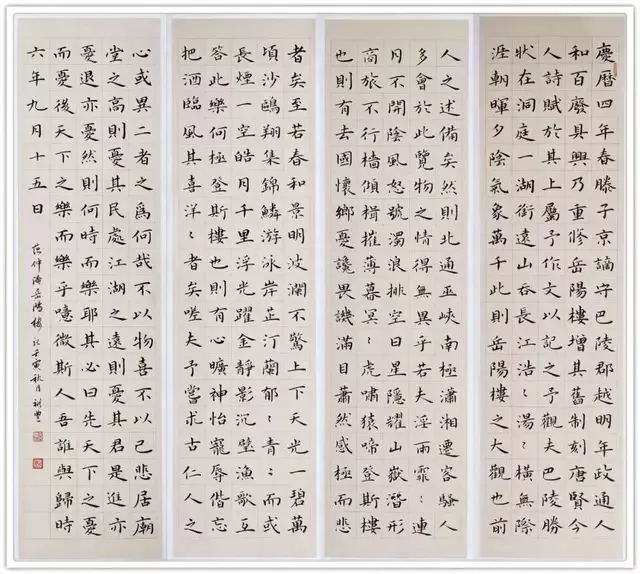 慶曆四年春滕子京謫守巴陵郡越明年政通人
和百廢具興乃重修岳陽樓增其舊制刻唐賢今
人詩賦於其上屬予作文以記之予觀夫巴陵勝
狀在洞庭一湖銜遠山吞長江浩〻湯〻橫無際
涯朝暉夕陰氣象萬千此則岳陽樓之大觀也前
人之述備矣然則北通巫峽南極瀟湘遷客騷人
多會於此覽物之情得無異乎若夫淫雨霏〻連
月不開陰風怒號濁浪排空日星隱耀山嶽潛形
商旅不行檣傾楫摧薄暮冥〻虎嘯猿啼登斯樓
也則有去國懷鄉憂讒畏譏滿目蕭然感極而悲
者矣至若春和景明波瀾不驚上下天光一碧萬
頃沙鷗翔集錦鱗游泳岸芷汀蘭郁〻青〻而或
長煙一空皓月千里浮光躍金靜影沉壁漁歌互
答此樂何極登斯樓也則有心曠神怡寵辱偕忘
把酒臨風其喜洋〻者矣嗟夫予嘗求古仁人之
心或異二者之爲何哉不以物喜不以己悲居廟
堂之高則憂其民處江湖之遠則憂其君是進亦
憂退亦憂然則何時而樂耶其必曰先天下之憂
而憂後天下之樂而樂乎噫微斯人吾誰與歸時
六年九月十五日 范仲淹岳陽樓記壬寅秋月